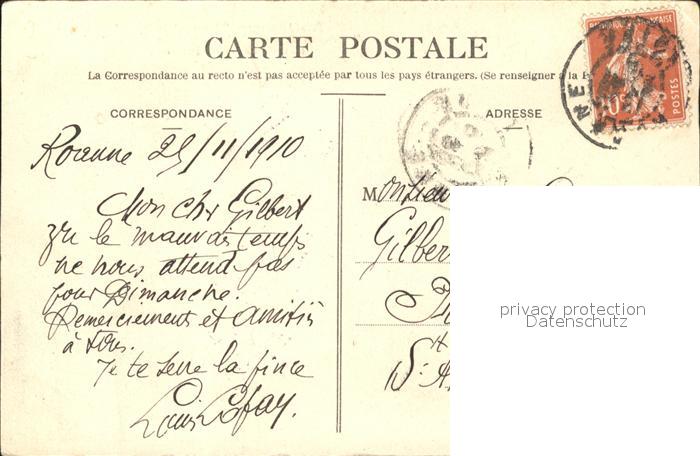 CARTE POSTALE
La Correspondance au recto n'est pas acceptée par tous les pays étrangers. (Se renseigner à la
CORRESPONDANCE
ADRESSE
Roanne 25/11/1910
Mon cher Gilbert
vu le mauvais temps
ne nous attend pas
pour Dimanche.
Remerciements et amitiés
à tous.
Je te serre la pince
Louis
Monsieur
Gilber
St
POSTES
privacy protection
Datenschutz